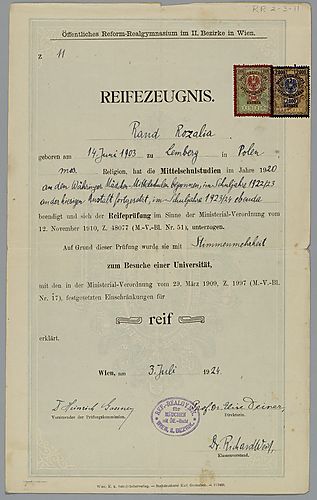 RR-2-3-11
Öffentliches Reform-Realgymnasium im II. Bezirke in Wien.
Z 11
REIFEZEUGNIS.
Rand Rozalia
geboren am 14 Juni 1903 zu Lemberg in Polen
mos. Religion, hat die Mittelschulstudien im Jahre 1920
an den Währinger Mädchen-Mittelschulen begonnen, im Schuljahre 1922/23
an der hiesigen Anstalt fortgesetzt, im Schuljahre 1923/24 ebenda
beendigt und sich der Reifeprüfung im Sinne der Ministerial-Verordnung vom
12. November 1910, Z. 48077 (M.-V.-Bl. Nr. 51), unterzogen.
Auf Grund dieser Prüfung wurde sie mit Stimmenmehrheit
zum Besuche einer Universität,
mit den in der Ministerial-Verordnung vom 29. März 1909, Z. 1997 (M.-V.-Bl.
Nr. 17), festgesetzten Einschränkungen für
reif
erklärt.
Wien, am 3. Juli 1924.
REF.-REALGYMN.
für
MÄDCHEN
WIEN, II. BEZIRK
Vorsitzender der Prüfungskommission.
Direktorin.
Dr. Richard Wolf
Klassenvorstand.